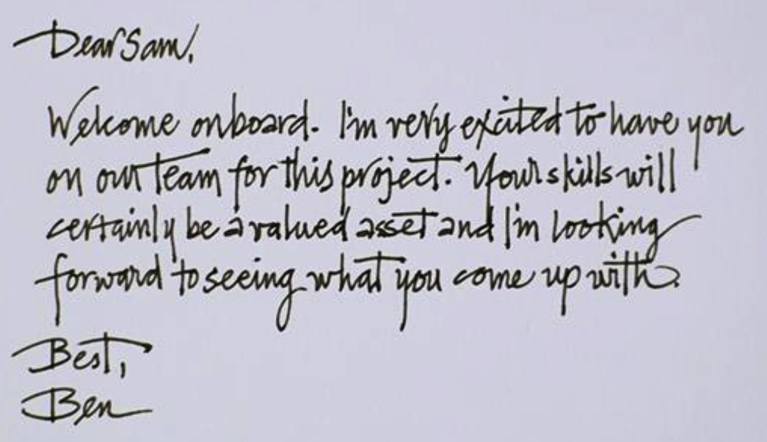 Dear Sam,
Welcome onboard. I'm very excited to have you
on our team for this project. Your skills will
certainly be a valued asset and I'm looking
forward to seeing what you come up with.
Best,
Ben